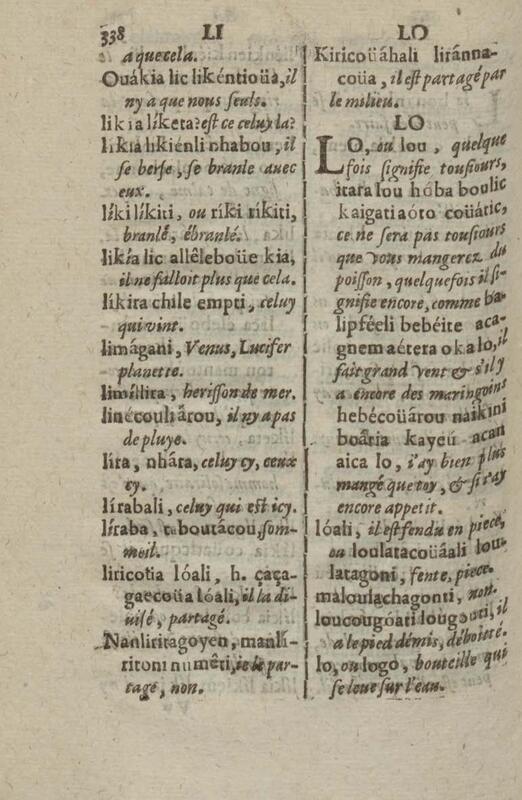 338 LI LO
a que cela.
Ouákia lic likéntioüa, il
ny a que nous seuls.
likia líketa? est ce celuy la?
likia likiénli nhabou, il
se berse, se branle auec
eux.
líki líkiti, ou ríki ríkiti,
branlé, ébranlé.
likía lic allêleboüe kia,
il ne falloit plus que cela.
líkira chile empti, celuy
qui vint.
limágani, Venus, Lucifer
planette.
limíllira, herisson de mer.
linécouliârou, il ny a pas
de pluye.
líra, nhâra, celuy cy, ceux
cy.
lírabali, celuy qui est icy.
líraba, taboutácou, som-
meil.
liricotia lóali, h. çaça-
gaecoüa lóali, il la di-
uisé, partagé.
Nanliritagoyen, manlí-
ritoni numêti, ie le par-
tage, non.
Kiricoüáhali liránna-
coüa, il est partagé par
le milieu.
LO
LO, ou lou, quelque
fois signifie tousiours,
itara lou hóba boulic
kaigatiaóto coüátic,
ce ne sera pas tousiours
que vous mangerez du
poisson, quelquefois il si-
gnifie encore, comme ba-
lipféeli bebéite aca-
gnem aétera oka lo, il
fait grand vent & s'il y
a encore des maringoins
hebécoüárou naikini
boâria kayeú acan
aica lo, i'ay bien plus
mangé que toy, & si i'ay
encore appetit.
lóali, il est fendu en piece,
ou loulatacoüáali lou-
latagoni, fente, piece.
maloulachagonti, non.
loucougóati lougouti, il
a le pied démis, déboité.
lo, ou logo, bouteille qui
se leue sur l'eau.